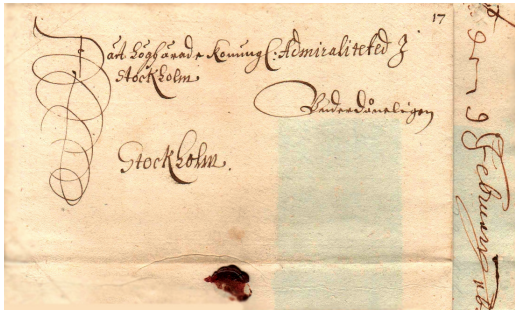 17
Dätt höghärade Konung C: Admiraliteted J
Stockholm
Underdåneligen
Stockholm.
den 9 February